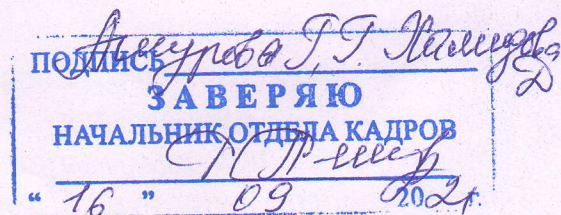 ПОДПИСЬ Г.Г. Хамидова
ЗАВЕРЯЮ
НАЧАЛЬНИК ОТДЕЛА КАДРОВ
“ 16 ” 09 2021 г.